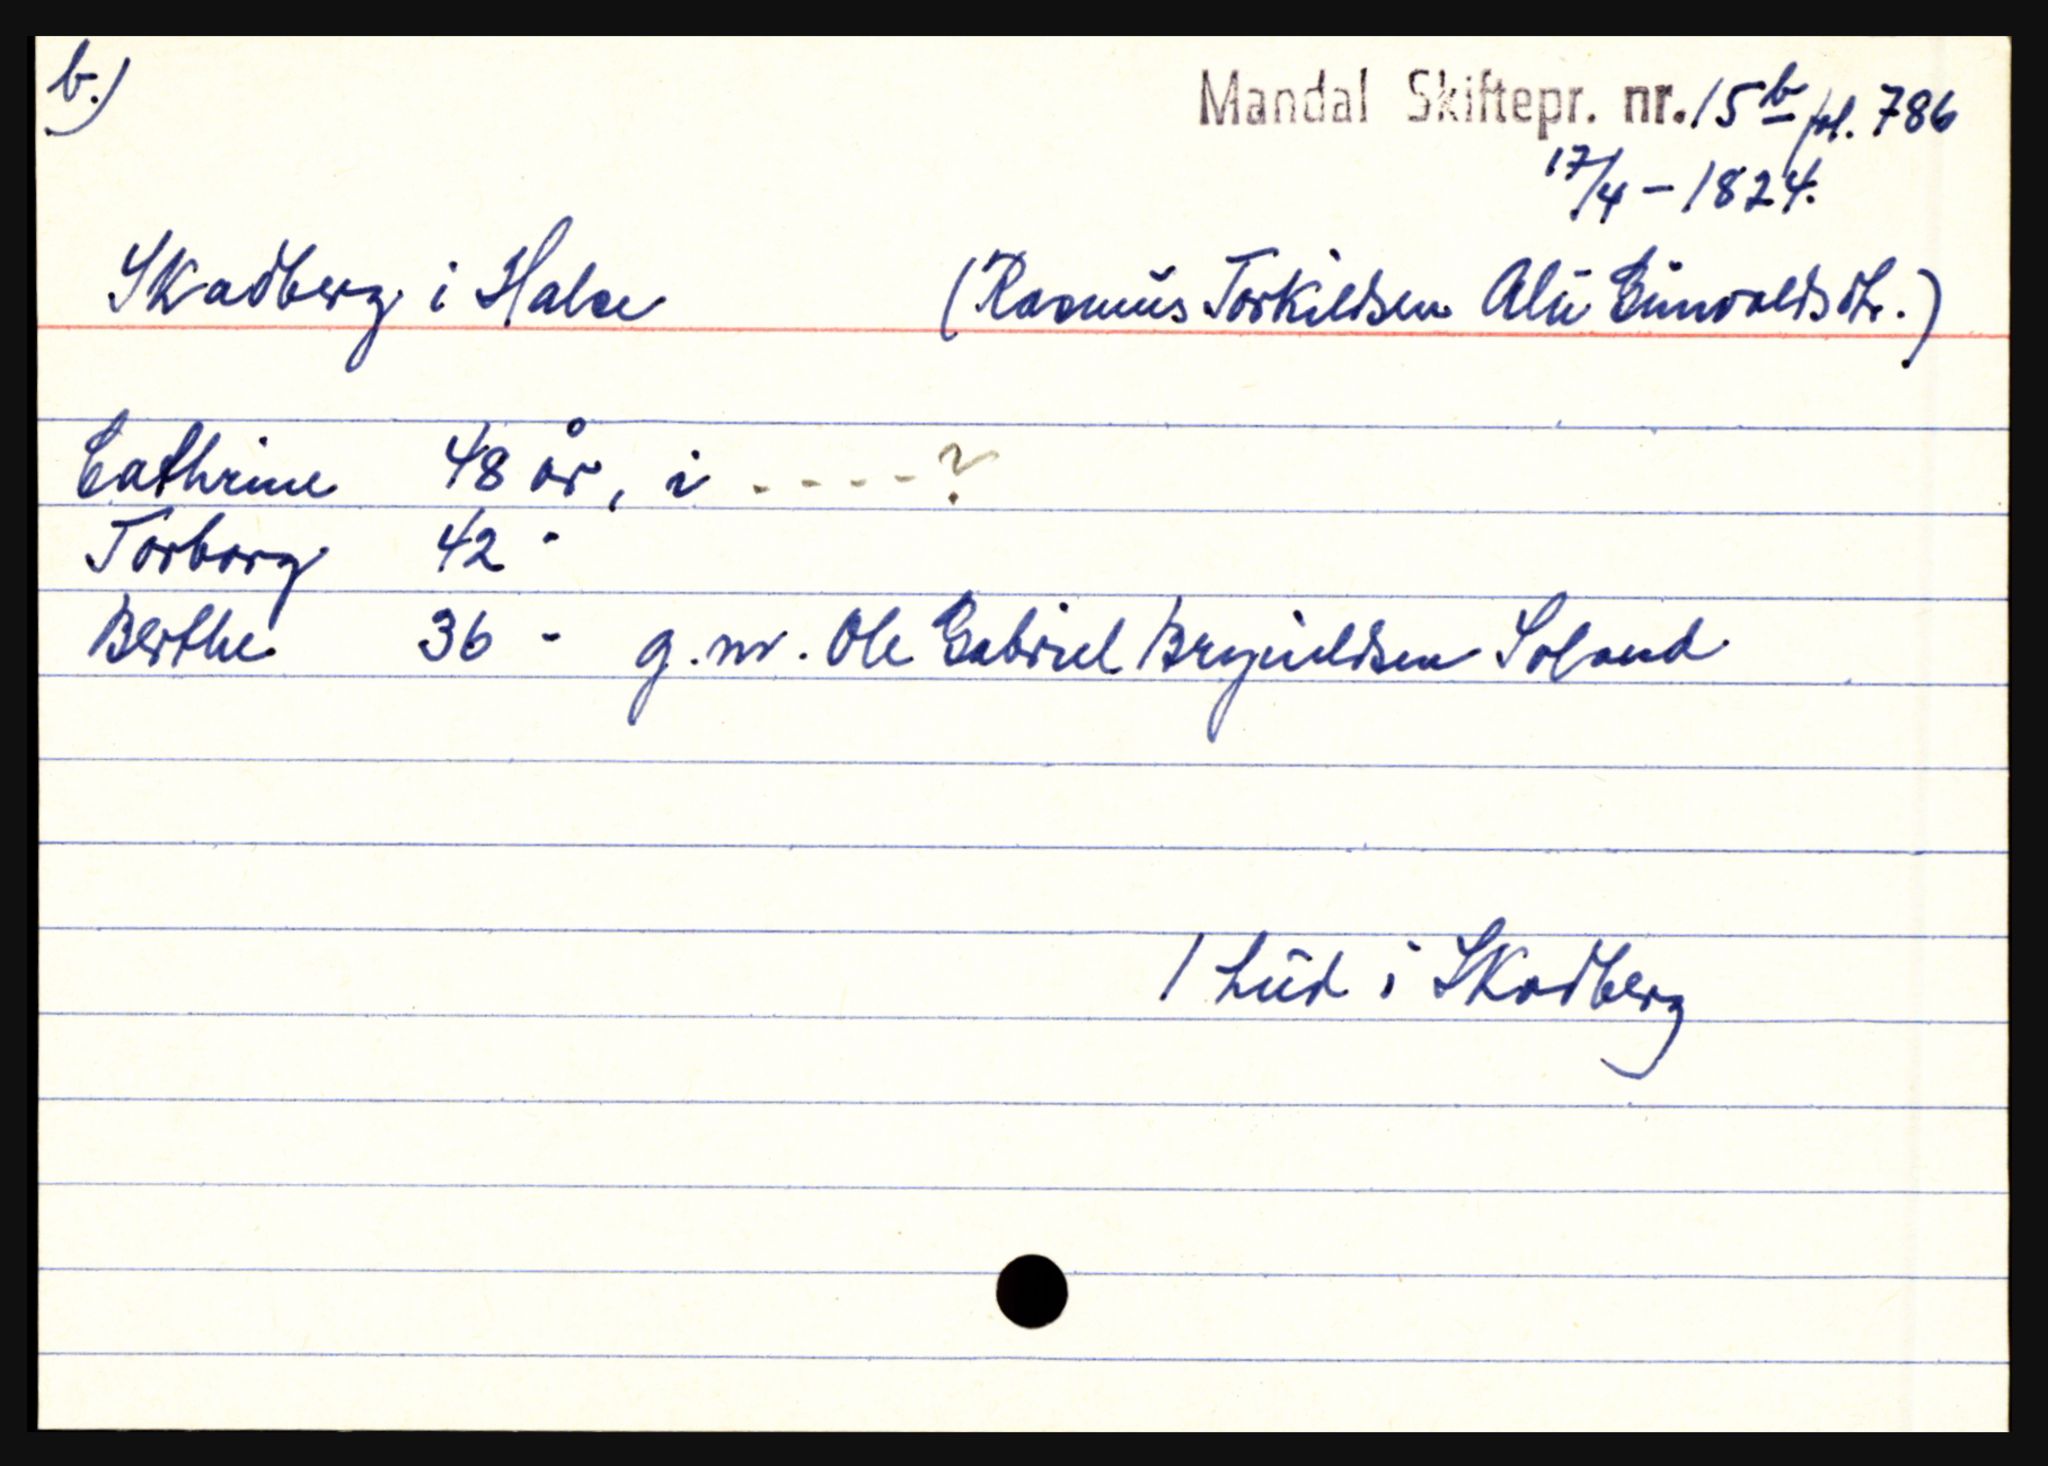 b.)
Mandal Skiftepr. nr. 15 b fol. 786
17/4 - 1824.
Skadberg i Halse (Rasmus Torkildsen Alu Gunvaldsdtr.)
Cathrine 48 år, i - - - - ?
Torborg 42 -
Berthe 36 - g.m. Ole Gabriel Brynildsen Soland
1 hud i Skadberg